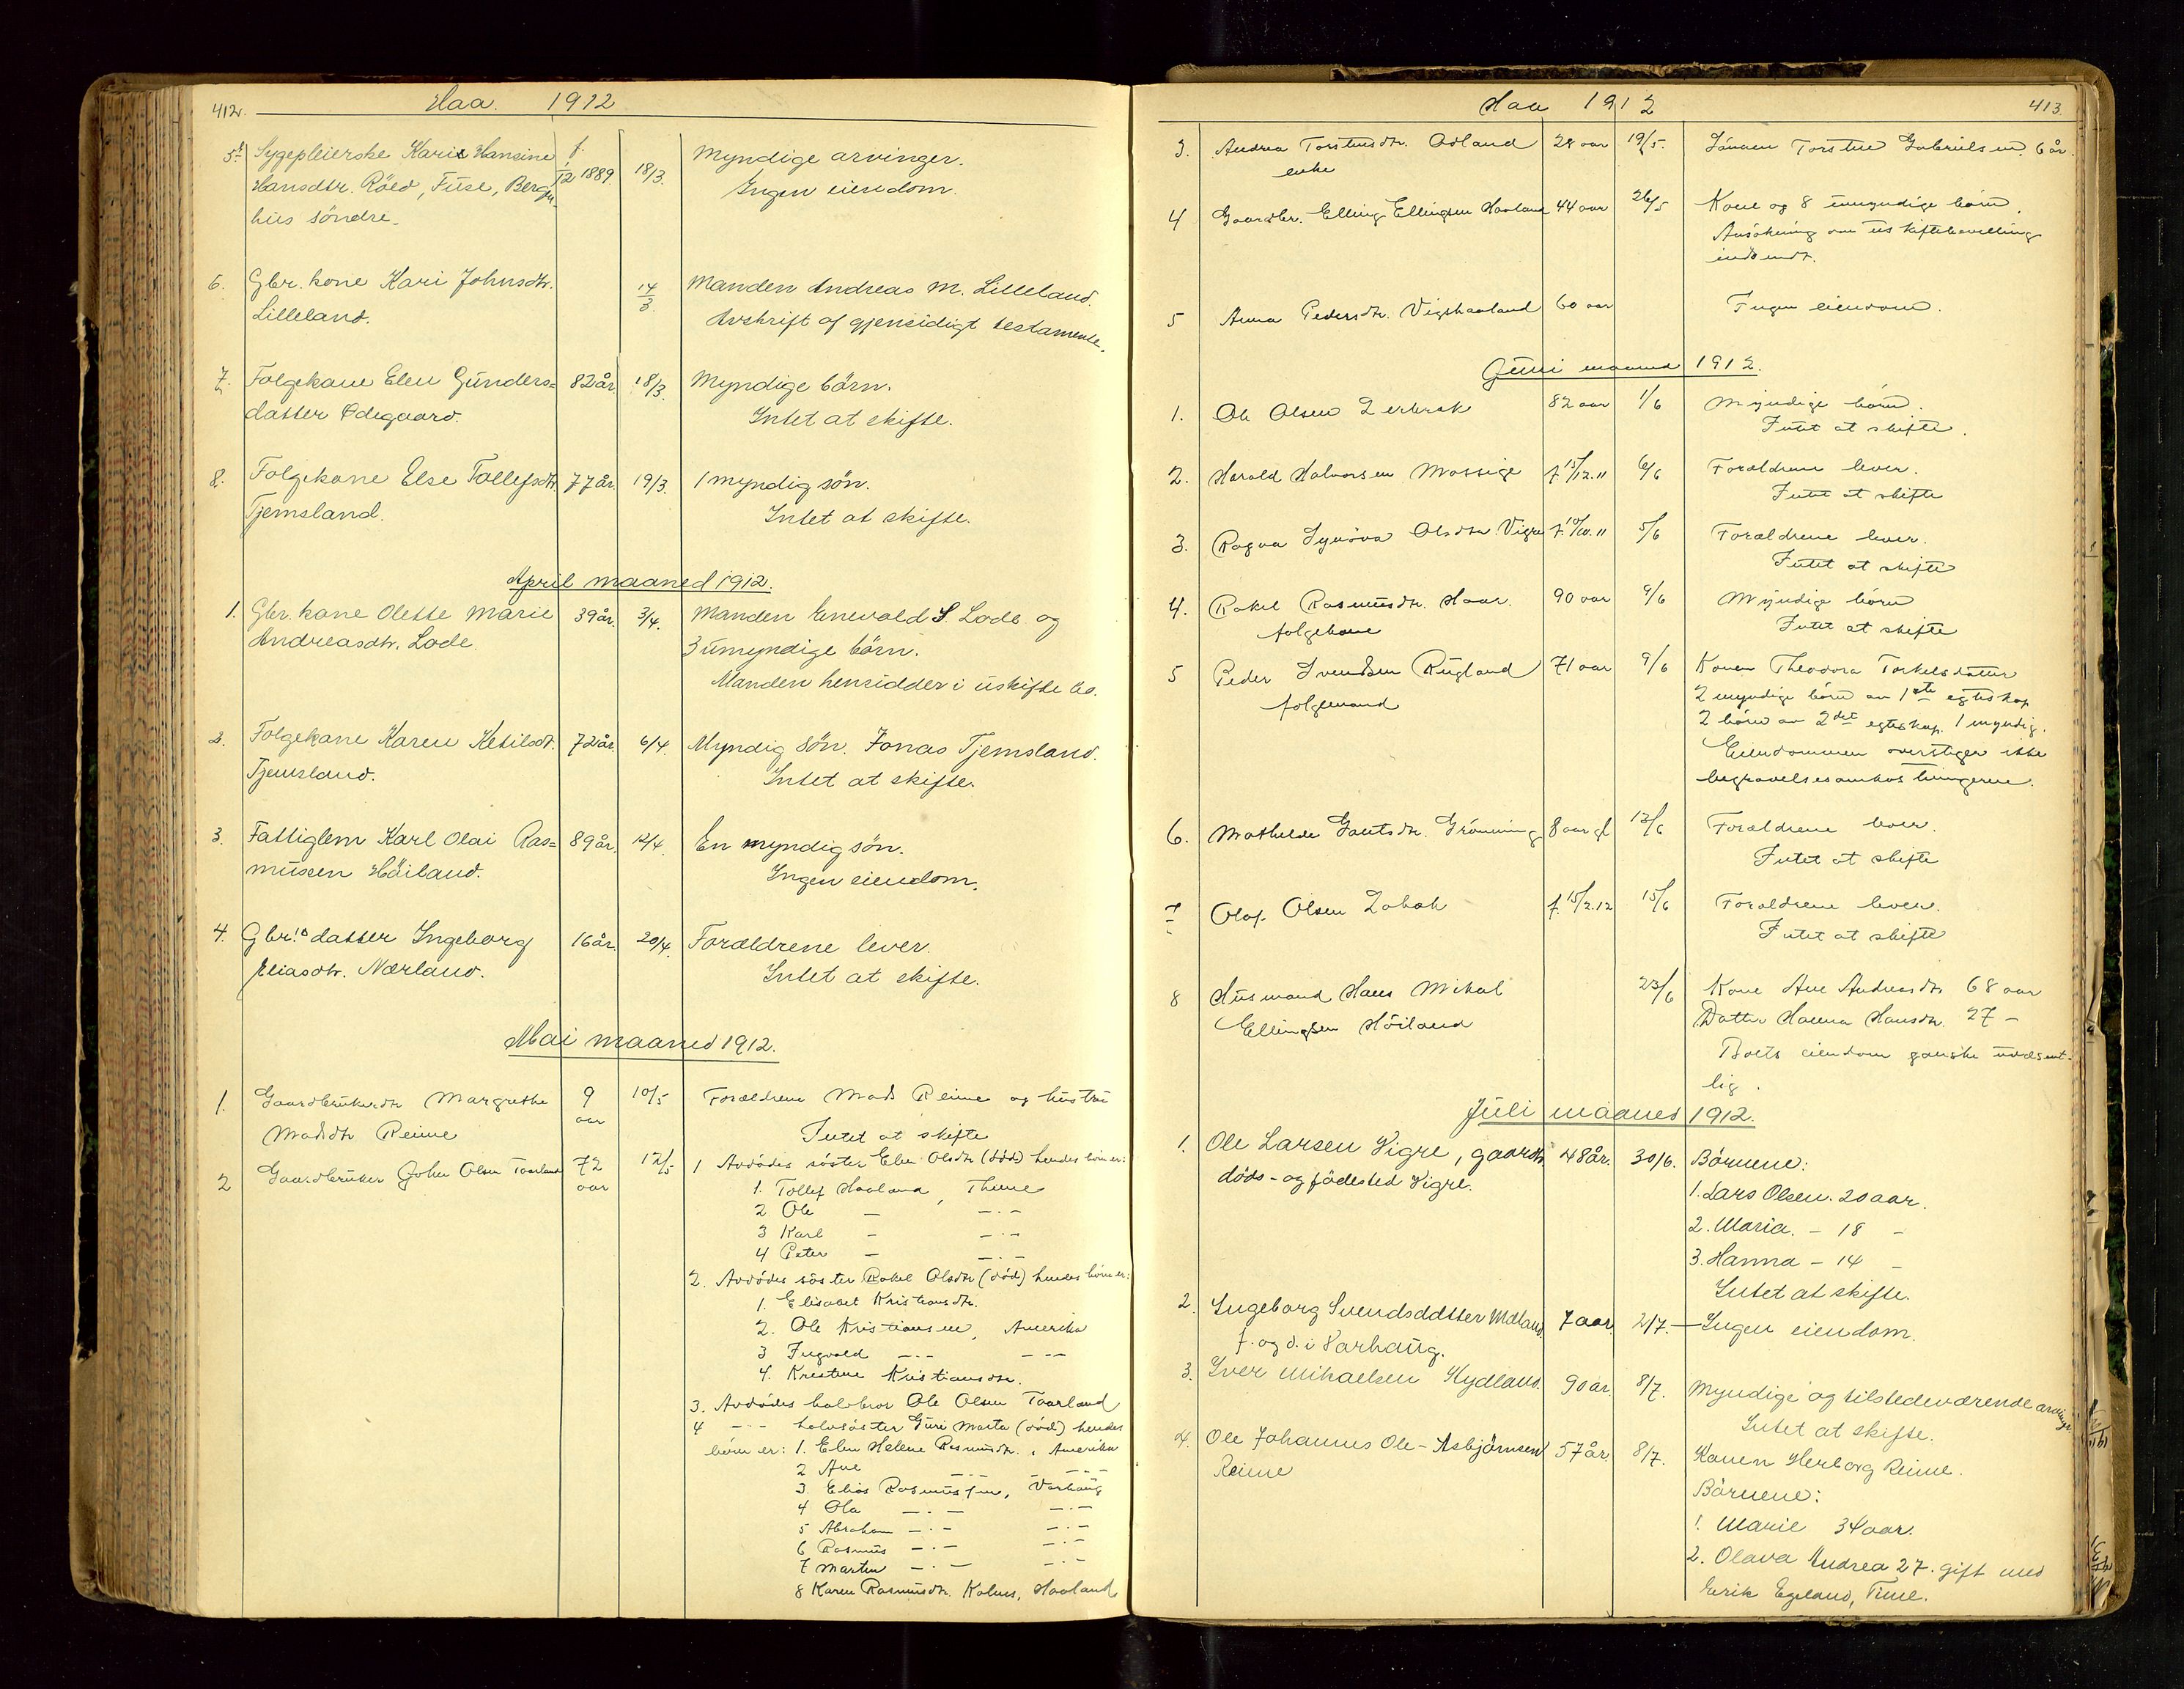 412. Haa. 1912
5. Sygepleierske Karis Hansine f. 1/12 1889. 18/3. Myndige arvinger.
Hansdtr. Röed, Fuse, Bergen- Ingen eiendom.
hus söndre.
6. Gbr. kone Kari Johnsdtr. 14/3 Manden Andreas M. Lilleland.
Lilleland. Avskrift af gjensidigt testamente.
7. Folgekone Elen Gunders= 82 år. 18/3. Myndige börn.
datter Ödegaard. Intet at skifte.
8. Folgekone Else Tollefsdtr. 77 år. 19/3. 1 myndig sön.
Tjemsland. Intet at skifte.
April maaned 1912.
1. Gbr. kone Olette Marie 39 år. 3/4. Manden Enevald S. Lode og
Andreasdtr. Lode. 3 umyndige börn.
Manden hensidder i uskifte bo.
2. Folgekone Karen Ketilsdt. 72 år. 6/4. Myndig sön. Jonas Tjemsland.
Tjemsland. Intet at skifte.
3. Fattiglem Karl Olai Ras= 89 år. 12/4. En myndig sön.
mussen Höiland. Ingen eiendom.
4. Gbr.s datter Ingeborg 16 år. 20/4. Forældrene lever.
Eliasdtr. Nærland. Intet at skifte.
Mai maaned 1912.
1. Gaardbrukerdtr Margrethe 9 10/5 Forældrene Mads Reime og hustru
Madsdtr Reime aar Intet at skifte
2 Gaardbruker John Olsen Taarland 72 12/5 1 Avdödes söster Elen Olsdtr (död) hendes börn er:
aar 1. Tollef Haaland, Thime
2 Ole — —·—
3 Karl — —·—
4 Peter — —·—
2. Avdödes söster Rakel Olsdtr (död) hendes börn er:
1. Elisabet Kristiansdtr.
2. Ole Kristiansen, Amerika
3 Ingvald —·— —·—
4. Kristine Kristiansdtr.
3. Avdödes halvbror Ole Olsen Taarland
4 —·— halvsöster Guri Marta (död) hendes
börn er: 1. Elen Helene Rasmusdtr. i Amerika
2 Ane —·— —·—
3. Elias Rasmussen, Varhaug
4 Ola —·— —·—
5 Abraham —·— —·—
6 Rasmus —·— —·—
7 Martin —·— —·—
8 Karen Rasmusdtr. Haaland
Haa 1912 413
3. Andrea Torstensdtr. Odland 28 aar 19/5. Sönnen Torstein Gabrielsen, 6 år.
enke
4 Gaardbr. Elling Ellingsen Haaland 44 aar 26/5 Kone og 8 umyndige börn.
Ansökning om uskiftebevilling
indsendt.
5 Anna Pedersdtr. Vigshaaland 60 aar Ingen eiendom.
Juni maaned 1912.
1. Ole Olsen 82 aar 1/6 Myndige börn.
Intet at skifte.
2. Harald Halvorsen Mossige f. 15/12.11 6/6 Forældrene lever.
Intet at skifte
3. Ragna Synöva Olsdtr Vigre f. 10/10.11 5/6 Forældrene lever.
Intet at skifte
4. Rakel Rasmusdtr. Haar. 90 aar 9/6 Myndige börn
folgekone Intet at skifte
5 Peder Svendsen Rugland 71 aar 9/6 Konen Theodora Torkelsdatter
folgemand 2 myndige börn av 1ste egteskap
2 börn av 2det egteskap. 1 myndig.
Eiendommen overstiger ikke
begravelsesomkostningerne.
6. Mathilde Gautsdtr. Grönning 8 aar gl 13/6 Forældrene lever.
Intet at skifte
7 Olaf Olsen f. 15/2.12 15/6 Forældrene lever.
Intet at skifte
8 Husmand Hans Mikal 23/6 Kone Ane Andreasdtr 68 aar
Ellingsen Höiland Datter Hanna Hansdtr. 27 –
Boets eiendom ganske uvæsent-
lig.
Juli maaned 1912.
1. Ole Larsen Vigre, gaardbr. 48 år. 30/6. Börnene:
döds- og födested Vigre. 1. Lars Olsen. 20 aar.
2. Maria. – 18 –
3. Hanna – 14 –
Intet at skifte.
2. Ingeborg Svendsdatter Mæland. 7 aar 2/7. — Ingen eiendom.
f. og d. i Varhaug.
3. Iver Mihaelsen Hydland. 90 ar. 8/7. Myndige og tilstedeværende arvinger
Intet at skifte.
4. Ole Johannes Ole-Asbjörnsen 57 år. 8/7. Konen Herborg Reime.
Reime Börnene:
1. Marie 34 aar.
2. Olava Andrea 27. gift med
Erik Egeland, Time.